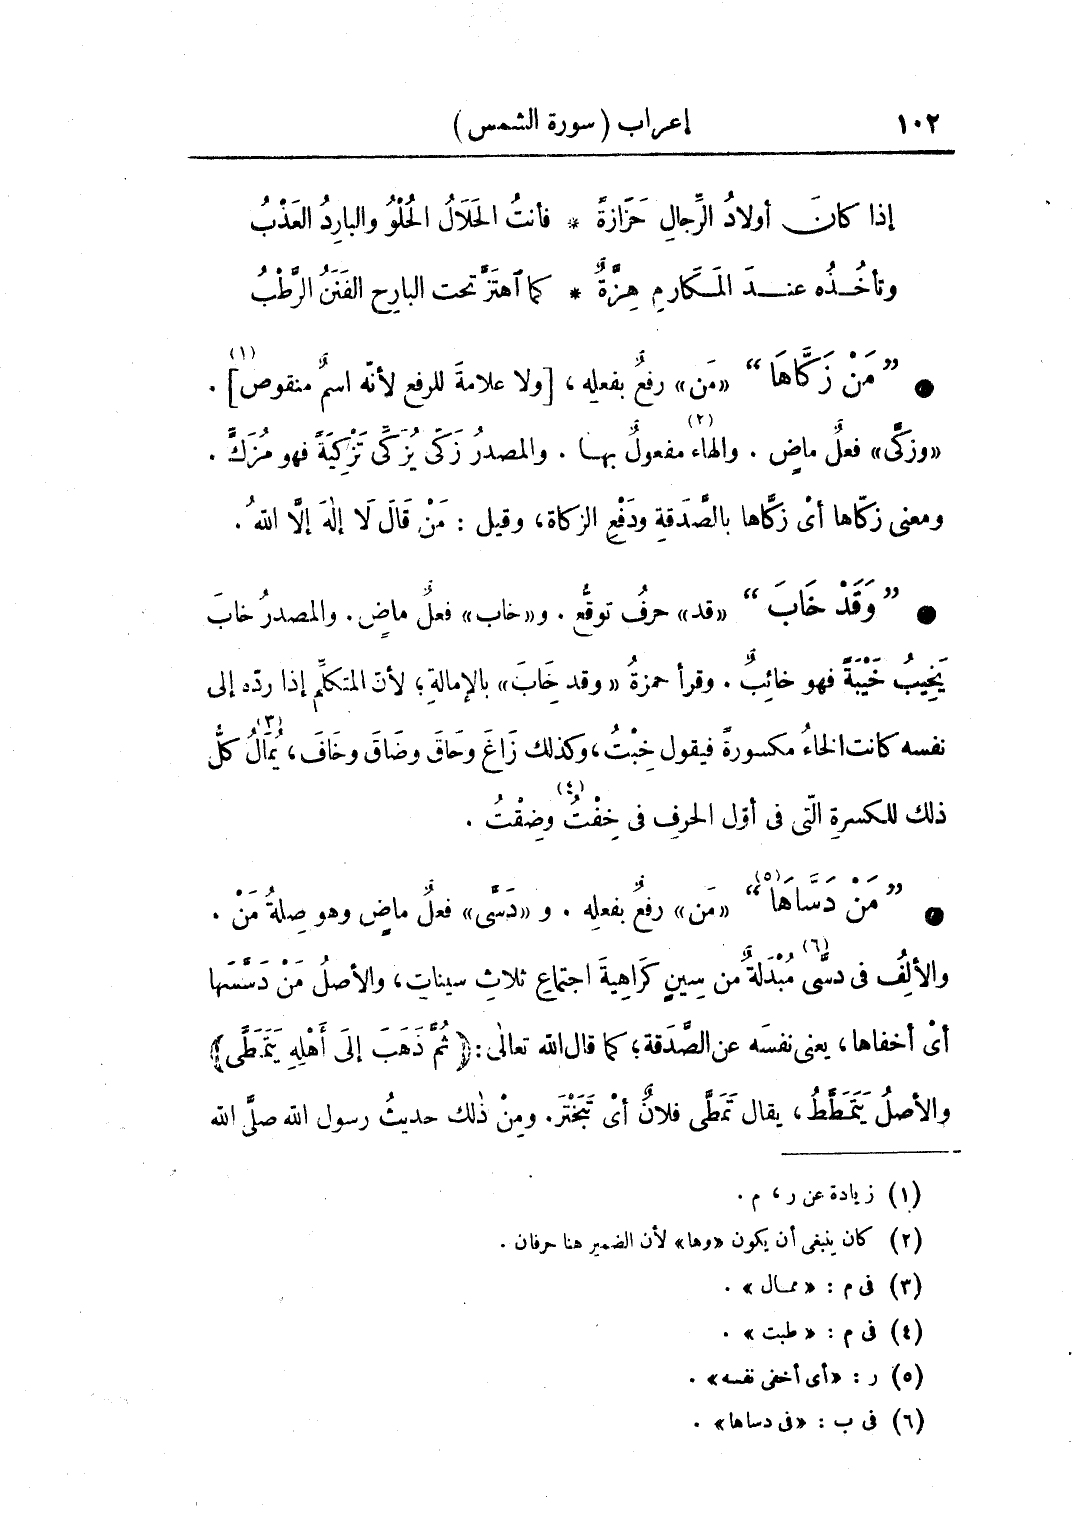 ١٠٢ إعراب (سورة الشمس)
إذا كانَ أولادُ الرِّجالِ حَزَازةً * فأنتُ الحَلَالُ الحُلْوُ والبارِدُ العَذْبُ
وتأخُذُه عندَ المَكَارمِ هِزَّةٌ * كما ٱهتَزَّ تحت البارِح الفَنَنُ الرَّطْبُ
● ”مَنْ زَكَّاهَا“ «مَن» رفعٌ بفعلِه، [ولا علامةَ للرفع لأنّه اسمٌ منقوص](١) .
«وزكَّى» فعلٌ ماضٍ . والهاء(٢) مفعولٌ بها . والمصدرُ زَكَّى يُزَكِّى تَزْكِيَةً فهو مُزَكٍّ .
ومعنى زكّاها أىْ زكَّاها بالصَّدَقةِ ودَفْعِ الزكاة، وقيل : مَنْ قَالَ لَا إلٰهَ إلَّا اللهُ .
● ”وَقَدْ خَابَ“ «قد» حرفُ توقُّع . و«خاب» فعلٌ ماضٍ . والمصدرُ خابَ
يَخِيبُ خَيْبَةً فهو خائِبٌ . وقرأ حمزةُ «وقد خَِابَ» بالإمالةِ؛ لأنّ المتكلِّم إذا ردّه إلى
نفسه كانت الخاءُ مكسورةً فيقول خِبْتُ، وكذلك زَاغَ وحَاقَ وضَاقَ وخَافَ، يُمَالُ(٣) كلُّ
ذلك للكسرةِ الّتى فى أوّل الحرفِ فى خِفْتُ(٤) وضِقْتُ .
● ”مَنْ دَسَّاهَا(٥)“ «مَن» رفعٌ بفعلِه . و «دَسَّى» فعلٌ ماضٍ وهو صِلةُ مَنْ .
والألِفُ فى دسَّى(٦) مُبْدَلةٌ من سِينٍ كَرَاهِيةَ اجتماعِ ثلاثِ سيناتٍ، والأصلُ مَنْ دَسَّسَها
أىْ أخفاها، يعنى نفسَه عن الصَّدَقة؛ كما قال الله تعالى : ﴿ثُمَّ ذَهَبَ إلَى أَهْلِهِ يَتَمَطَّى﴾
والأصلُ يَتَمَطَّطُ، يقال تَمَطَّى فلانٌ أىْ تَبَخْتَرَ. ومِنْ ذٰلك حديثُ رسول الله صلَّى الله
(١) زيادة عن ر، م .
(٢) كان ينبغى أن يكون «وها» لأن الضمير هنا حرفان .
(٣) فى م : «ممال» .
(٤) فى م : «طبت» .
(٥) ر : «أى أخفى نفسه» .
(٦) فى ب : «فى دساها» .